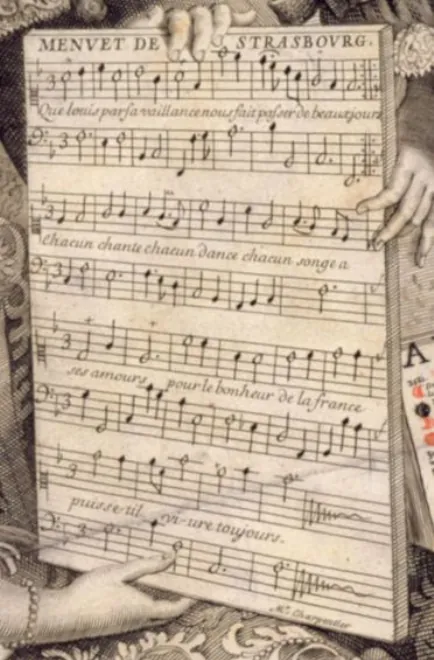 MENVET DE STRASBOVRG.
Que louis par sa vaillance nous fait passer de beaux jours
Chacun chante chacun dance chacun songe a
ses amours pour le bonheur de la france
A
puisse-til vi-ure toujours.
Mr. Charpentier